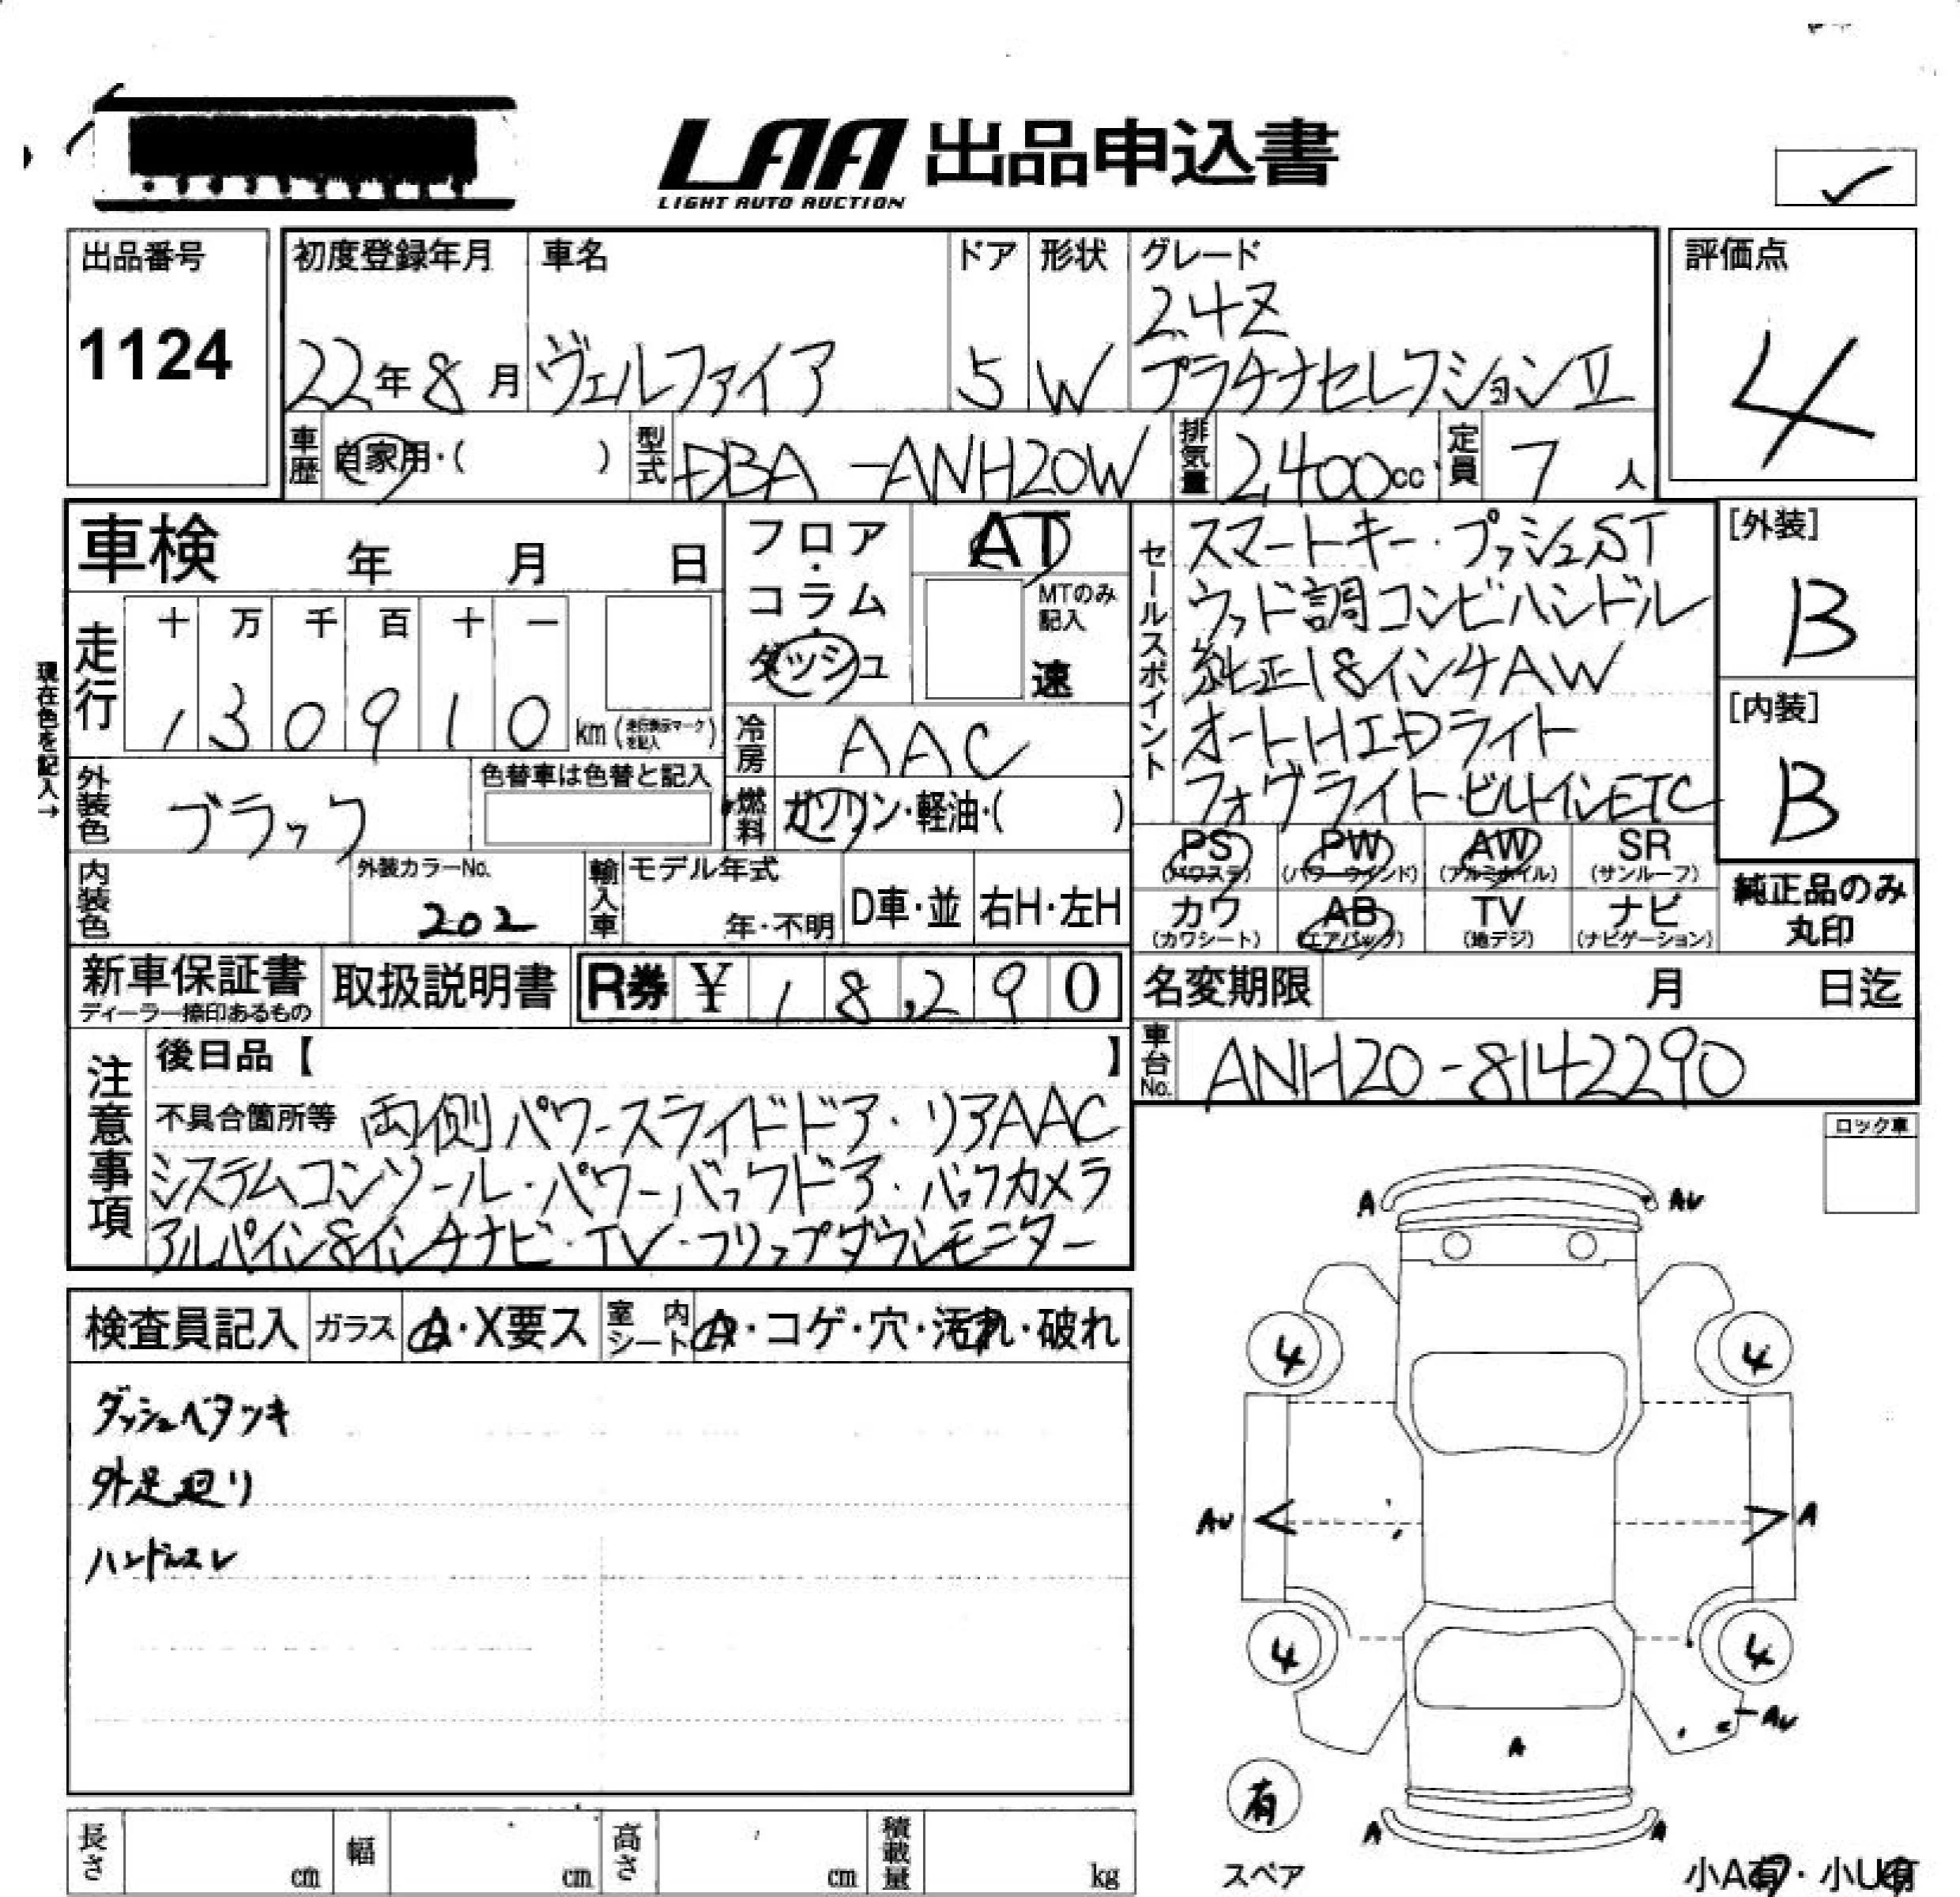 LAA 出品申込書
LIGHT AUTO AUCTION
出品番号
1124
初度登録年月
22年8月
車名
ヴェルファイア
ドア
5
形状
W
グレード
2.4Z
プラチナセレクションⅡ
評価点
4
車歴 自家用・( )
型式 DBA-ANH20W
排気量 2,400cc
定員 7人
車検 年 月 日
フロア・コラム・ダッシュ
AT
MTのみ記入
速
走行
十 万 千 百 十 一
1 3 0 9 1 0 km(走行表示マークを記入)
現在色を記入→
冷房 AAC
燃料 ガソリン・軽油・( )
外装色 ブラック
色替車は色替と記入
内装色
外装カラーNo.
202
輸入車
モデル年式
年・不明
D車・並
右H・左H
セールスポイント
スマートキー・プッシュST
ウッド調コンビハンドル
純正18インチAW
オートHIDライト
フォグライト・ビルトインETC
[外装]
B
[内装]
B
PS (パワステ)
PW (パワーウインド)
AW (アルミホイル)
SR (サンルーフ)
カワ (カワシート)
AB (エアバッグ)
TV (地デジ)
ナビ (ナビゲーション)
純正品のみ丸印
新車保証書
ディーラー捺印あるもの
取扱説明書
R券 ¥ 18,290
名変期限 月 日迄
車台No. ANH20-8142290
注意事項
後日品【 】
不具合箇所等 両側パワースライドドア・リアAAC
システムコンソール・パワーバックドア・バックカメラ
アルパイン8インチナビ・TV・フリップダウンモニター
ロック車
検査員記入
ガラス A・X要ス
室内シート A・コゲ・穴・汚れ・破れ
ダッシュベタツキ
外足廻り
ハンドルスレ
A
AU
4
4
AU
A
4
4
AU
A
A
A
有
スペア
小A有・小U有
長さ cm
幅 cm
高さ cm
積載量 kg